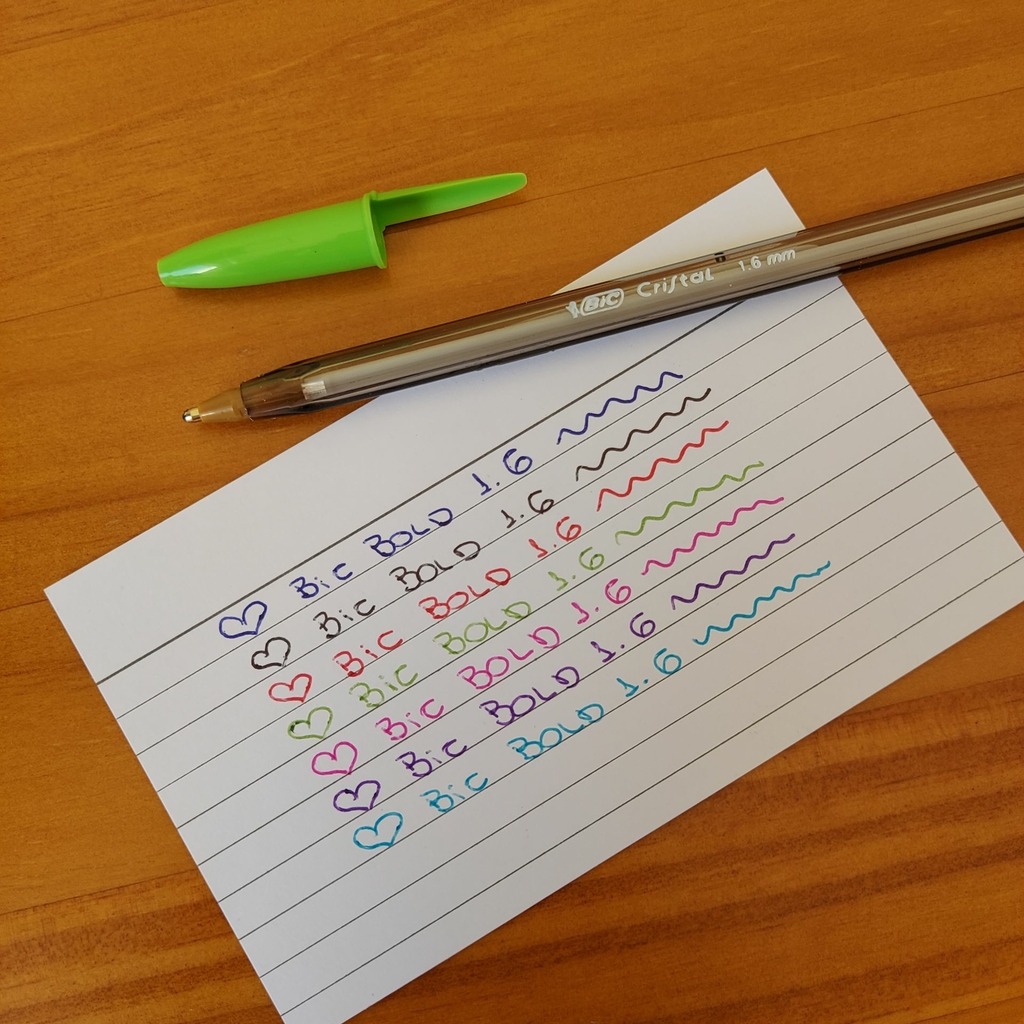 BIC Cristal 1.6 mm
Bic BOLD 1.6
Bic BOLD 1.6
Bic BOLD 1.6
Bic BOLD 1.6
Bic BOLD 1.6
Bic BOLD 1.6
Bic BOLD 1.6